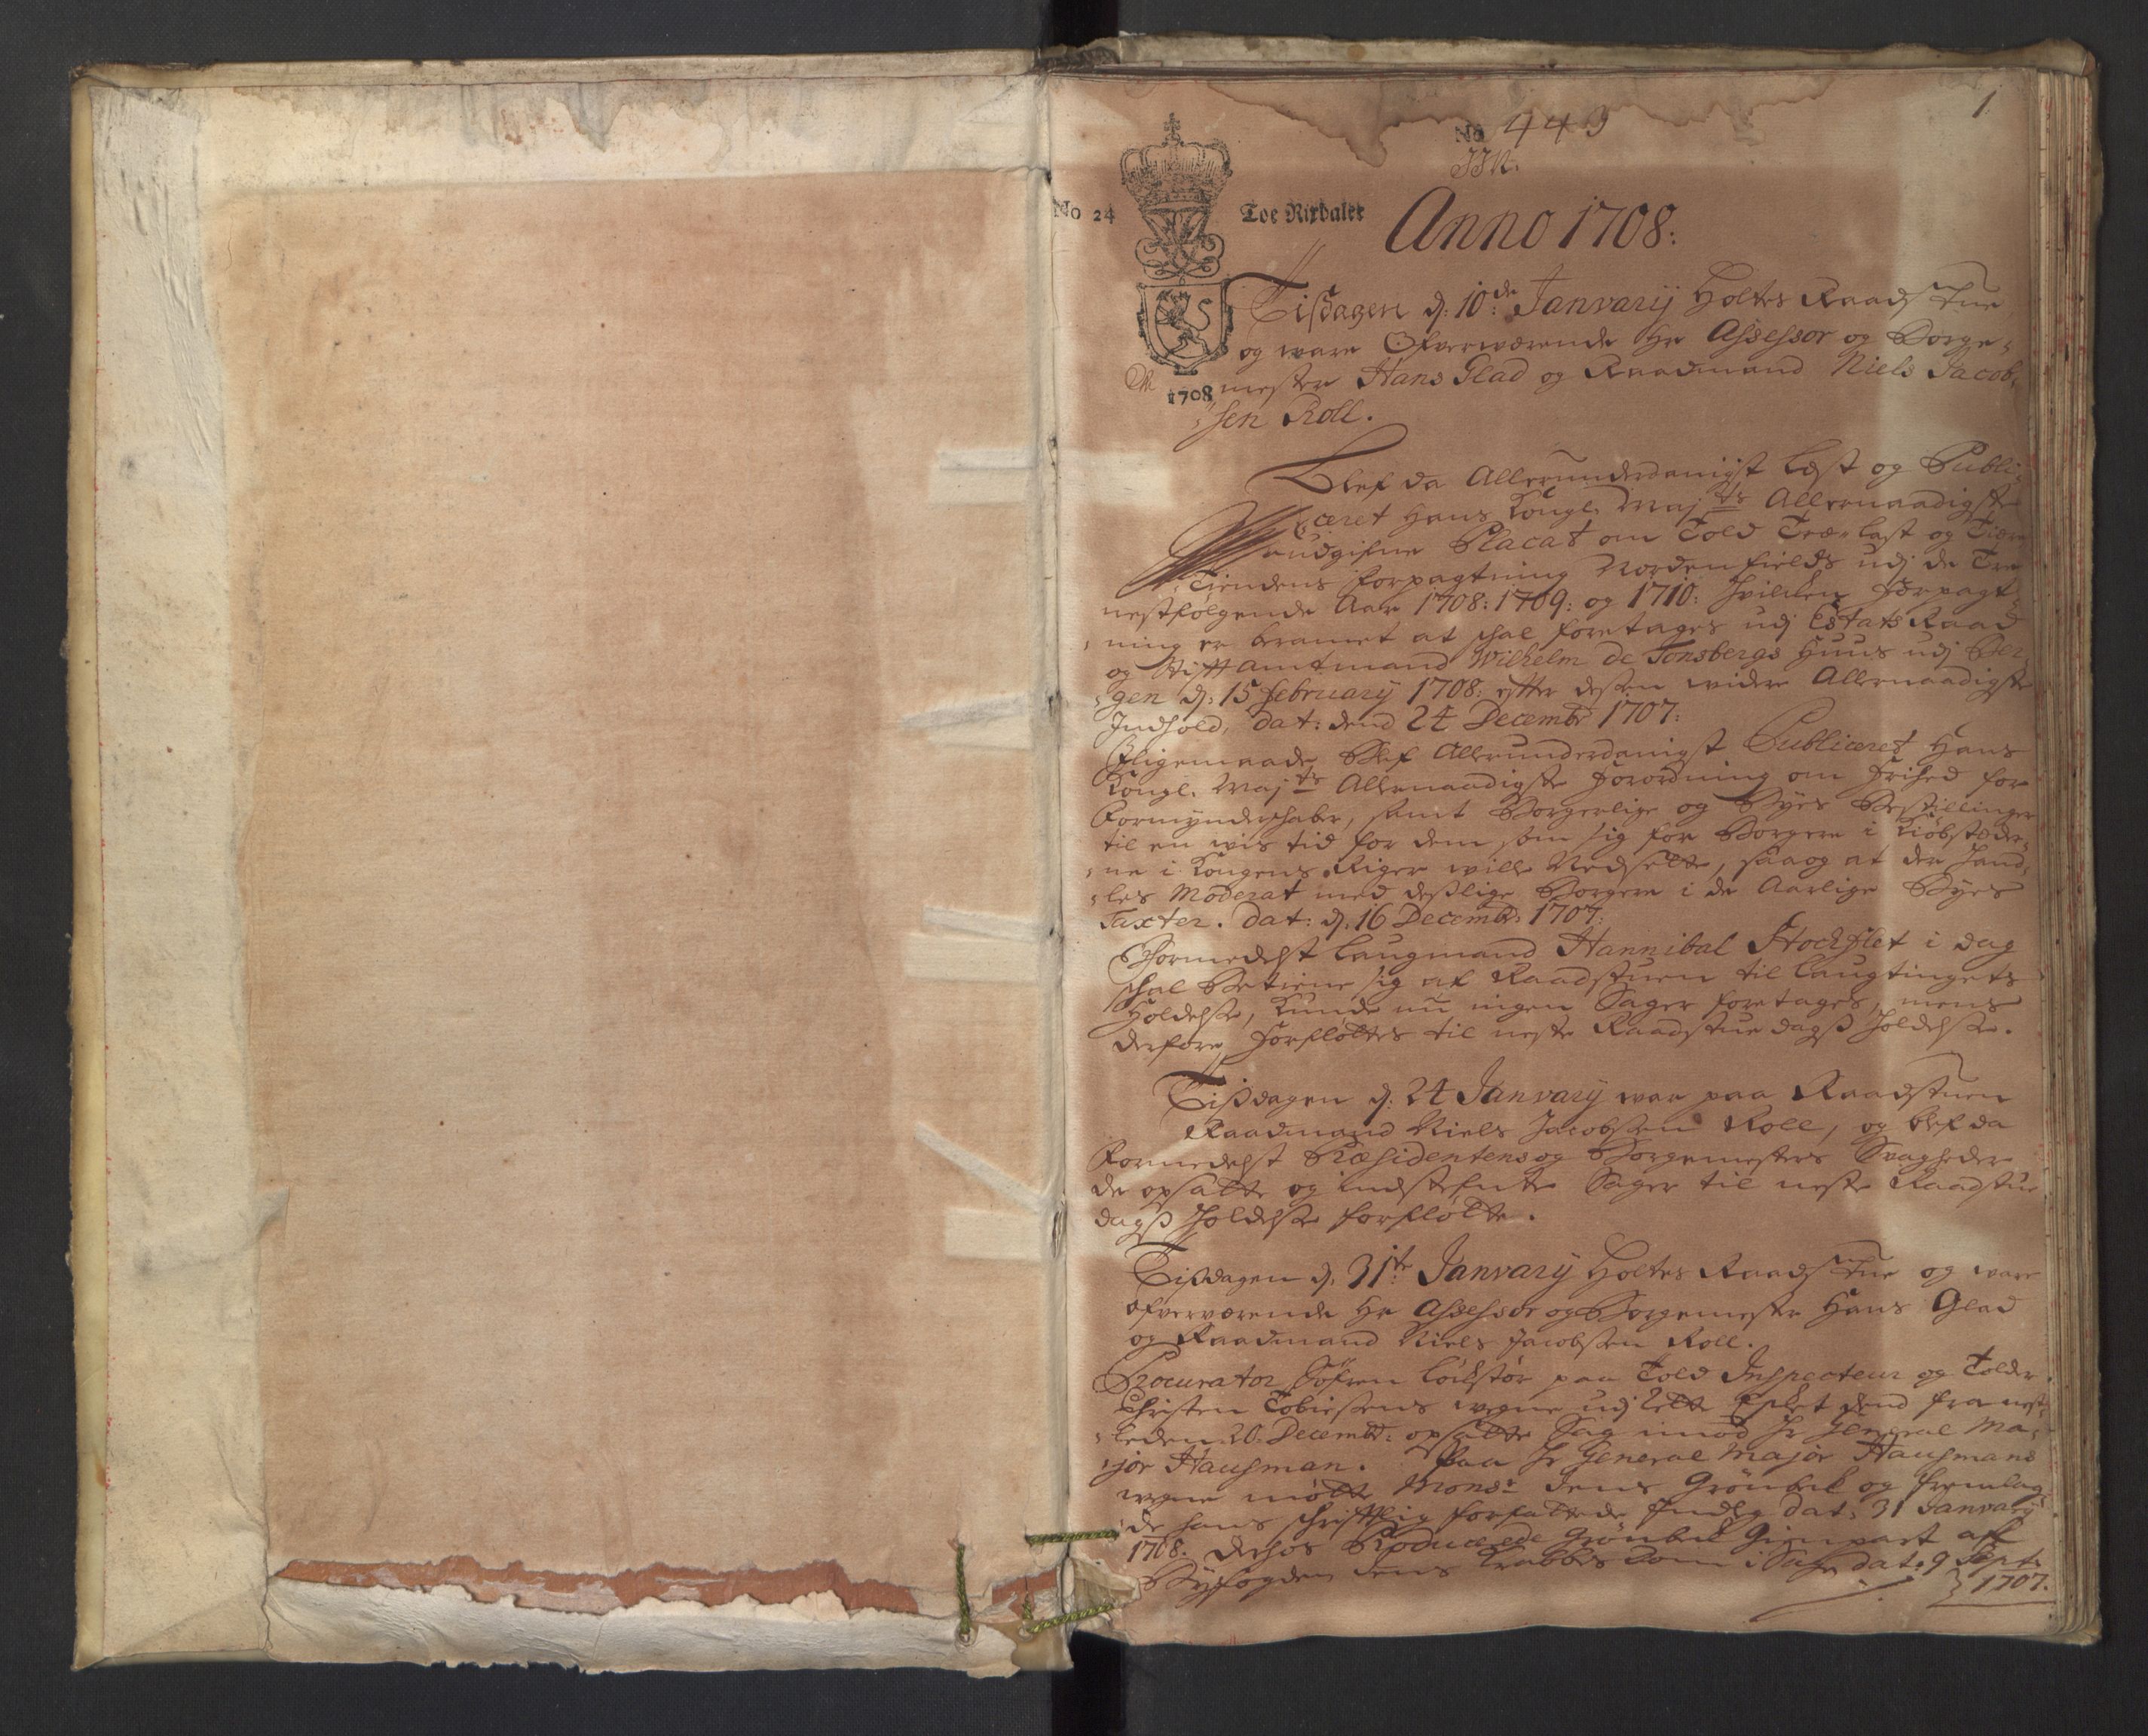 1
No 449
J J N.
No 24
Toe Rixdaler
Anno 1708:
Tisdagen d: 10de: Janvarij Holtes Raadstue
og ware Ofverwærende Hr Assessor og Borge-
mester Hans Glad og Raadmand Niels Jacob-
1708
sen Roll.
Blef da Allerunderdanigst læst og Publi-
ceret Hans Kongl. Maj:ts Allernaadigste
udgifne Placat om Told Træ-last og Tiære
Tiendens forpagtning Nordenfields udj de Tre
nestfølgende Aar 1708: 1709: og 1710: Hvilken Forpagt-
ning er beramet at schal foretages udj Estats Raad
og Stiftamtmand Wilhelm de Tonsbergs Huus udj Ber-
gen d: 15 february 1708: efter dessen widre Allernaadigste
Indhold, dat: dend 24 Decembr 1707:
Ligemaade Blef Allerunderdanigst Publiceret Hans
Kongl. Maj:ts Allernaadigste Forordning om frihed for
Formynderschaber, samt Borgerlige og Byes Bestillinger
til en wis tid for dem som sig for Borgere i Kiöbstæder-
ne i Kongens Riger wille Nedsette, saaog at der hand-
les Moderat med deslige Borgere i de Aarlige Byes
Taxter. dat: d. 16 Decembr: 1707:
Formedelst Laugmand Hannibal Stochflet i dag
schal Betiene sig af Raadstuen til Laugtingets
Holdelse, Kunde nu ingen Sager foretages, mens
derfore forfløttes til neste Raadstue dagß holdelse.
Tisdagen d: 24 Janvarij war paa Raadstuen
Raadmand Niels Jacobsen Roll, og blef da
Formedelst Præsidentens og Borgemesters Svagheder
de opsatte og indstefnte Sager til neste Raadstue
dagß holdelse forfløtte.
Tisdagen d. 31te Janvarij Holtes Raadstue og ware
ofverværende Hr Assessor og Borgemester Hans Glad
og Raadmand Niels Jacobsen Roll.
Procurator Söfren paa Told Inspecteur og Tolder
Christen Tobiesens wegne udj Rette Esket dend fra nest-
leden 20. Decembr: opsatte Sag imod Hr General Ma-
jor Hausman. Paa Hr General Major Hausmans
wegne mötte Monsr Jens Grönbek og fremlag-
de hans schriftlig forfattede Indlg dat: 31 Janvarij
1708. derhos Producerede Grönbek Gienpart af
Byfogden Jens Krabbes Dom i Sagen dat: 9 Sept:
1707.